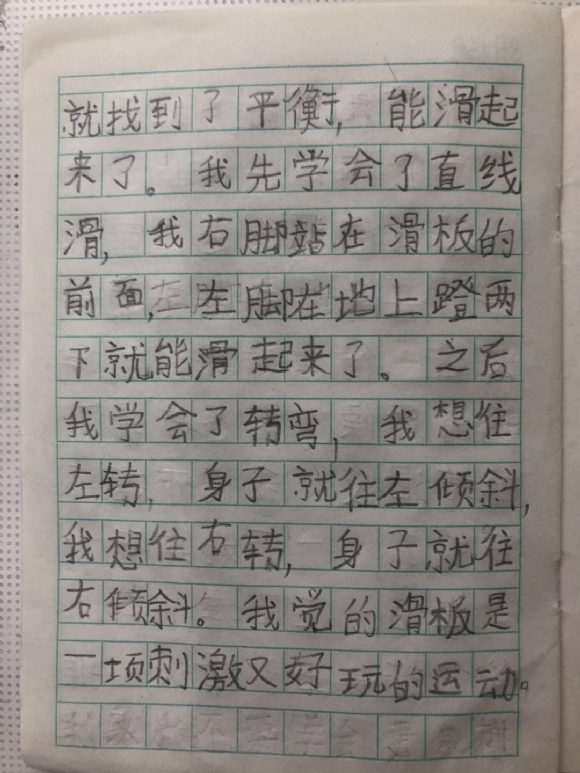 就找到了平衡，能滑起
来了。我先学会了直线
滑，我右脚站在滑板的
前面，左脚在地上蹬两
下就能滑起来了。之后
我学会了转弯，我想住
左转，身子就往左倾斜，
我想住右转，身子就往
右倾斜。我觉的滑板是
一项刺激又好玩的运动。